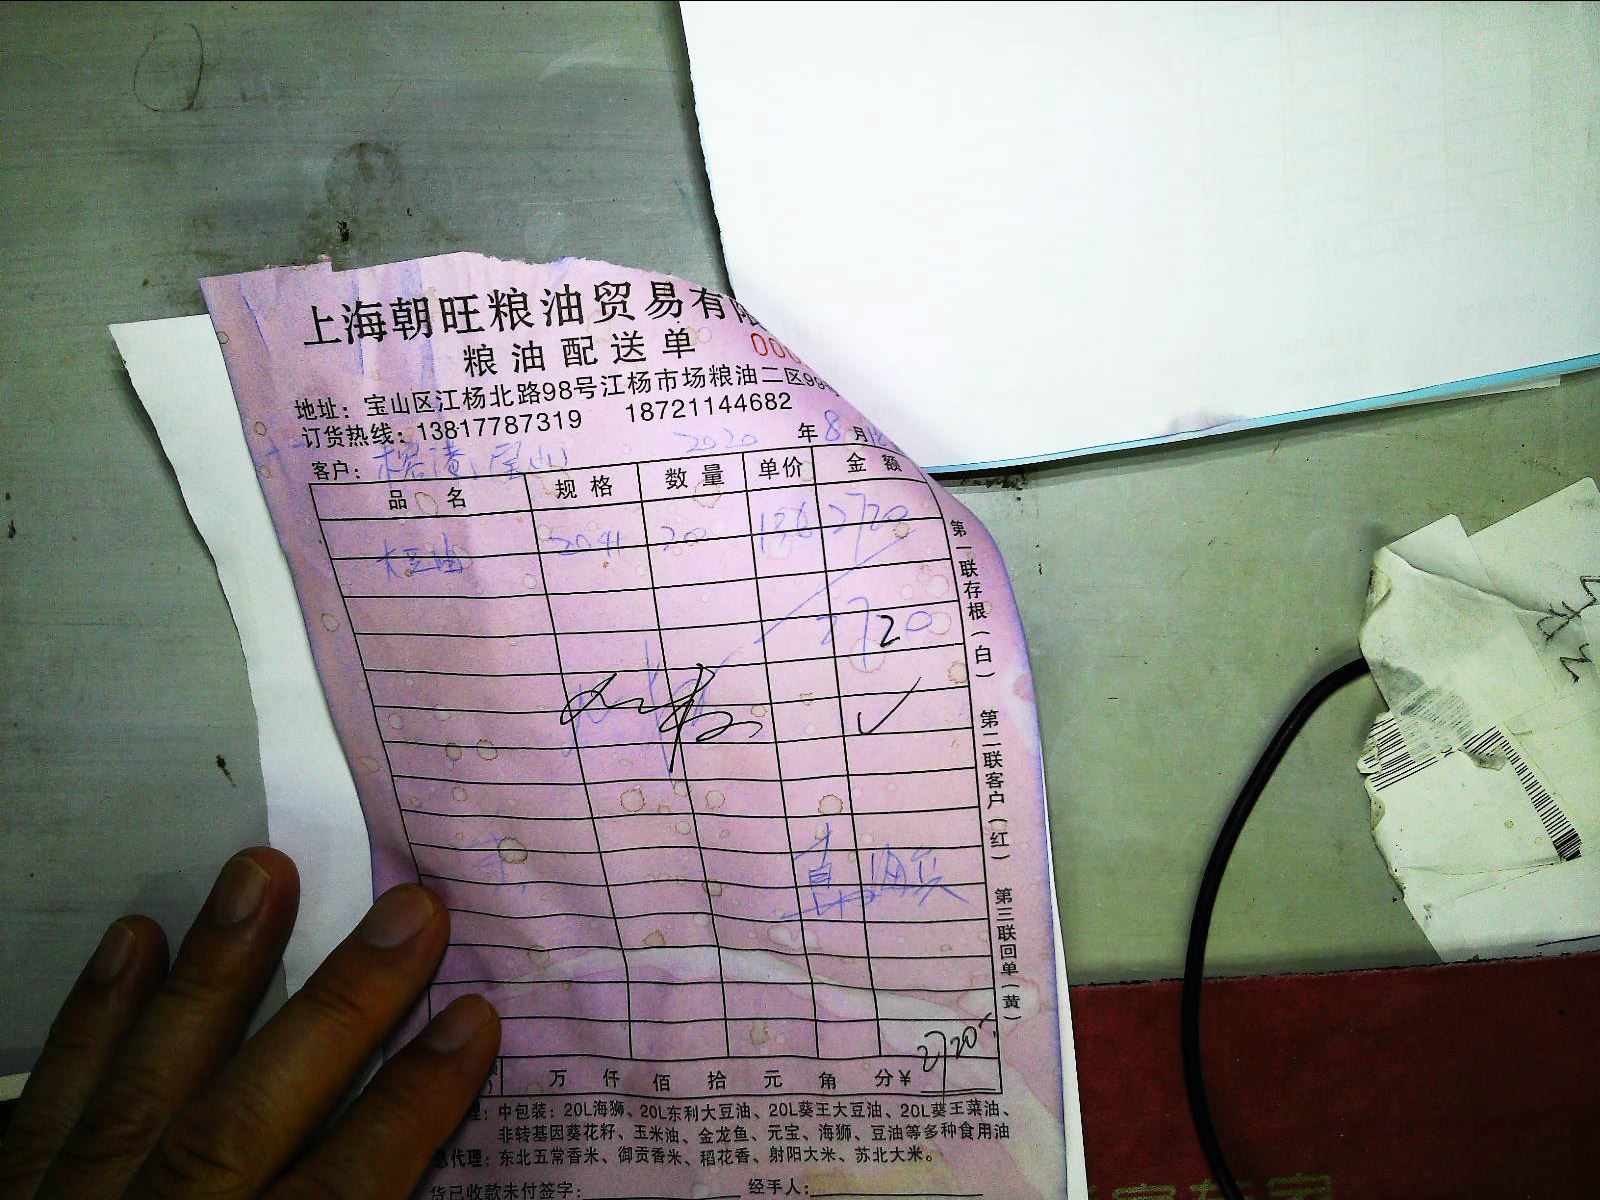 上海朝旺粮油贸易有限
粮油配送单 000
地址：宝山区江杨北路98号江杨市场粮油二区99
订货热线：13817787319 18721144682
客户： 宝山 2020 年 8 月
品名 规格 数量 单价 金额
大豆油 20 136 2720
2720
2720
万 仟 佰 拾 元 角 分¥ 2720
第一联存根（白）
第二联客户（红）
第三联回单（黄）
理：中包装：20L海狮、20L东利大豆油、20L葵王大豆油、20L葵王菜油、
非转基因葵花籽、玉米油、金龙鱼、元宝、海狮、豆油等多种食用油
总代理：东北五常香米、御贡香米、稻花香、射阳大米、苏北大米。
货已收款未付签字： 经手人：